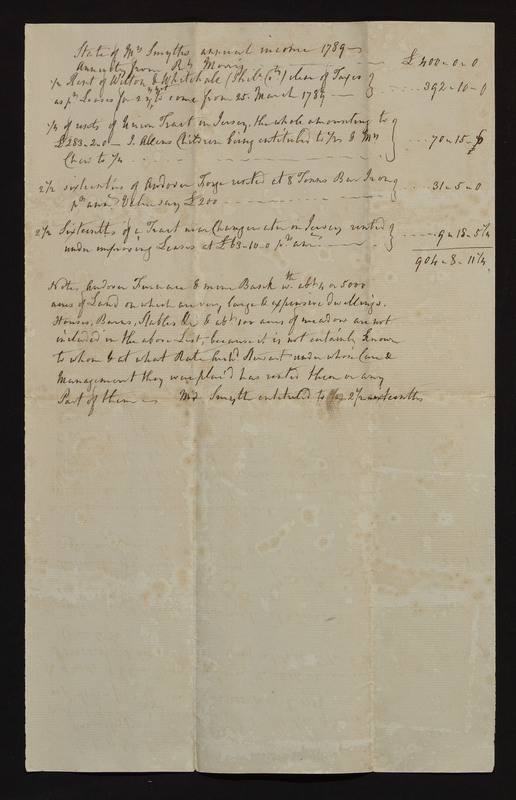 State of Mrs Smyths annual income 1789 —
Annuity from Rt Morris — — £ 400-0-0
½ Rent of Wilton & Whitehale (Phila Co) clear of Taxes
as pr Leases for 2 yrs to come from 25. March 1789 — 392-10-0
¼ of rents of Union Tract in Jersey, the whole amounting to
£283-2-0 — J. Allens Children being entituled to ½ & Mrs
Chew to ¼ . . . . 70-15-6
2½ sixteenths of Andover Forge rented at 8 Tonns Bar Iron
pr ann Value say £200 . . . . 31-5-0
2½ Sixteenths of a Tract near Changewater in Jersey rented
under improving Leases at £63-10-0 pr ann . . . . 9-18-5¼
904-8-11¼
Note, Andover Furnace & mine Bank wth abt 4 or 5000
acres of Land on which are very large & expensive dwellings.
Houses, Barns, Stables &c & abt 100 acres of meadow are not
included in the above List, because it is not certainly known
to whom & at what Rate Stewart under whose Care &
Management they were plac'd has rented them or any
Part of them — Mrs Smyth entituled to 2½ sixteenths